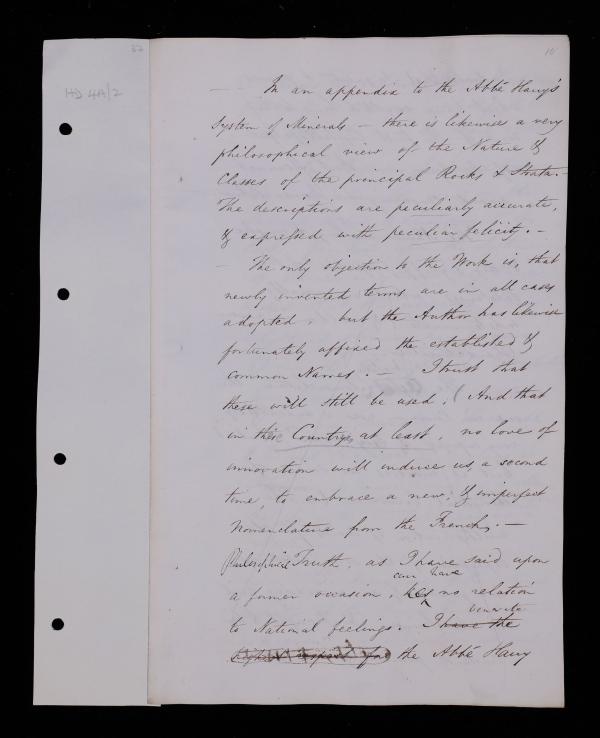 82
HD 4A/2
10
— In an appendix to the Abbé Hauy's
System of Minerals — there is likewise a very
philosophical view of the Nature &
Classes of the principal Rocks & Strata. —
The descriptions are peculiarly accurate,
& expressed with peculiar felicity. —
— The only objection to the Work is, that
newly invented terms are in all cases
adopted, but the Author has likewise
fortunately affixed the established &
common Names. — I trust that
these will still be used. (And that
in this Country, at least, no love of
innovation will induce us, a second
time, to embrace a new, & imperfect
Nomenclature from the French. —
Philosophical Truth, as I have said upon
can have
a former occasion, has no relation
venerate
to National feelings. I have the
highest respect for the Abbé Hauy